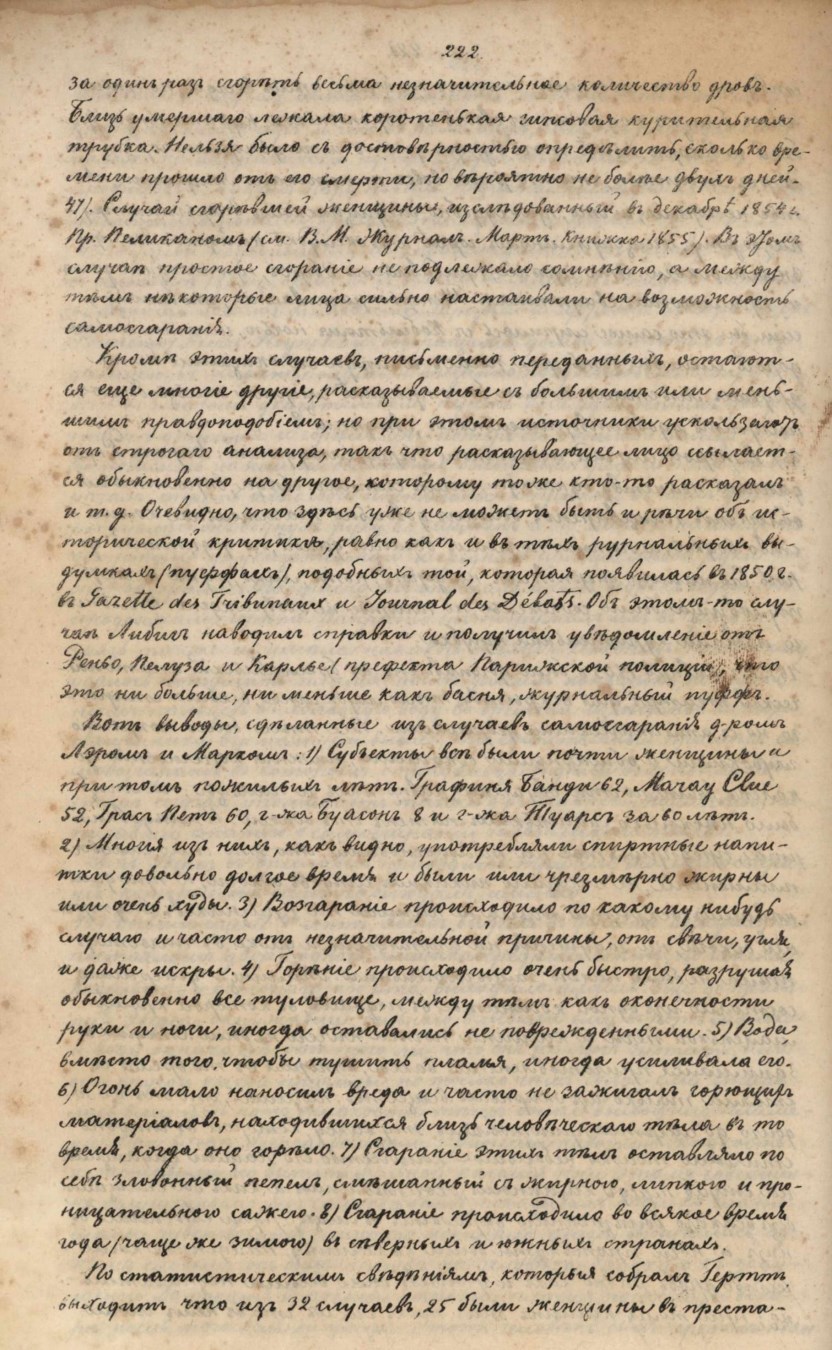 222
за одинъ разъ сгорѣть весьма незначительное количество дровъ.
Близь умершаго лежала коротенькая гипсовая курительная
трубка. Нельзя было съ достовѣрностью опредѣлить, сколько вре-
мени прошло отъ его смерти, но вѣроятно не болѣе двухъ дней.
47). Случай сгорѣвшей женщины, изслѣдованный въ декабрѣ 1854 г.
Пр. Пеликаномъ (см. В. М. Журнал. Мартъ. Книжка 1855). Въ этомъ
случаѣ простое сгораніе не подлежало сомнѣнію, а между
тѣмъ нѣкоторые лица сильно настаивали на возможность
самосгаранія.
Кромѣ этихъ случаевъ, письменно переданныхъ, остают-
ся еще многіе другіе, расказываемые съ большимъ или мень-
шимъ правдоподобіемъ; но при этомъ источники ускользаютъ
отъ строгаго анализа, такъ что расказывающее лицо ссылает-
ся обыкновенно на другое, которому тоже кто-то расказалъ
и т. д. Очевидно, что здѣсь уже не можетъ быть и рѣчи объ ис-
торической критикѣ, равно какъ и въ тѣхъ журнальныхъ вы-
думкахъ (пуффахъ), подобныхъ той, которая появилась въ 1850 г.
въ Gazette des Tribunaux и Journal des Débats. Объ этомъ-то слу-
чаѣ Либихъ наводилъ справки и получилъ увѣдомленіе отъ
Реньо, Пелуза и Карлье (префекта Парижской полиціи), что
это ни больше, ни меньше какъ басня, журнальный пуффъ.
Вотъ выводы, сдѣланные изъ случаевъ самосгаранія д-ромъ
Лэромъ и Маркомъ: 1) Субъекты всѣ были почти женщины и
при томъ пожилыхъ лѣтъ. Графиня Банди 62, Maray Clue
52, Грасъ Петъ 60, г-жа Буасонъ 8 и г-жа Туарсъ за 60 лѣтъ.
2) Многія изъ нихъ, какъ видно, употребляли спиртные напи-
тки довольно долгое время и были или чрезмѣрно жирны
или очень худы. 3) Возгараніе происходило по какому нибудь
случаю и часто отъ незначительной причины, отъ свѣчи, угля,
и даже искры. 4) Горѣніе происходило очень быстро, разрушая
обыкновенно все туловище, между тѣмъ какъ оконечности
руки и ноги, иногда оставались не поврежденными. 5) Вода,
вмѣсто того, чтобы тушить пламя, иногда усиливала его.
6) Огонь мало наносилъ вреда и часто не зажигалъ горющихъ
матеріаловъ, находившихся близь человѣческаго тѣла въ то
время, когда оно горѣло. 7) Сгараніе этихъ тѣлъ оставляло по
себѣ зловонный пепелъ, смѣшанный съ жирною, липкою и про-
ницательною сажею. 8) Сгараніе происходило во всякое время
года (чаще же зимою) въ сѣверныхъ и южныхъ странахъ.
По статистическимъ свѣдѣніямъ, которыя собралъ Герттъ,
выходитъ что изъ 32 случаевъ, 25 были женщины въ преста-